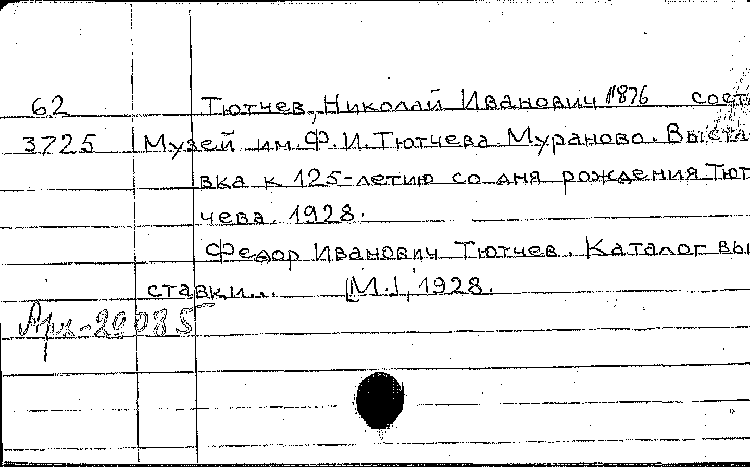 62 Тютчев, Николай Иванович 1876 сост
3725 Музей им. Ф.И. Тютчева. Мураново. Выста
вка к 125-летию со дня рождения Тют
чева. 1928.
Федор Иванович Тютчев. Каталог вы
ставки... [М.], 1928.
Арх-29085